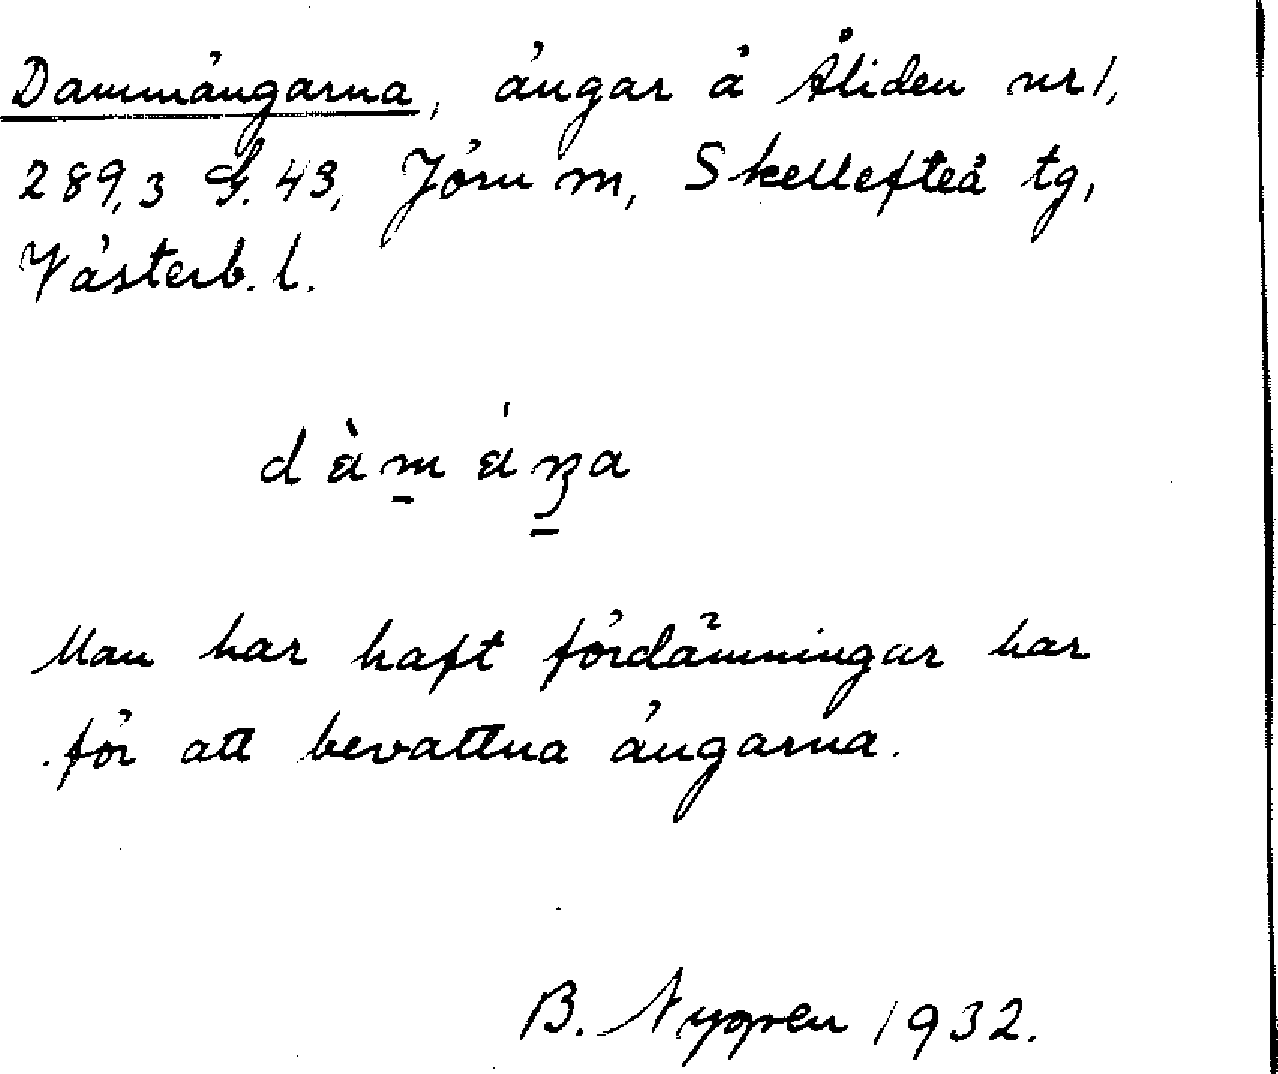 Dammängarna, ängar å Åliden nr 1,
289,3 G. 43, Jörn m, Skellefteå tg,
Västerb. l.
Man har haft fördämningar här
för att bevattna ängarna.
B. Nygren 1932.